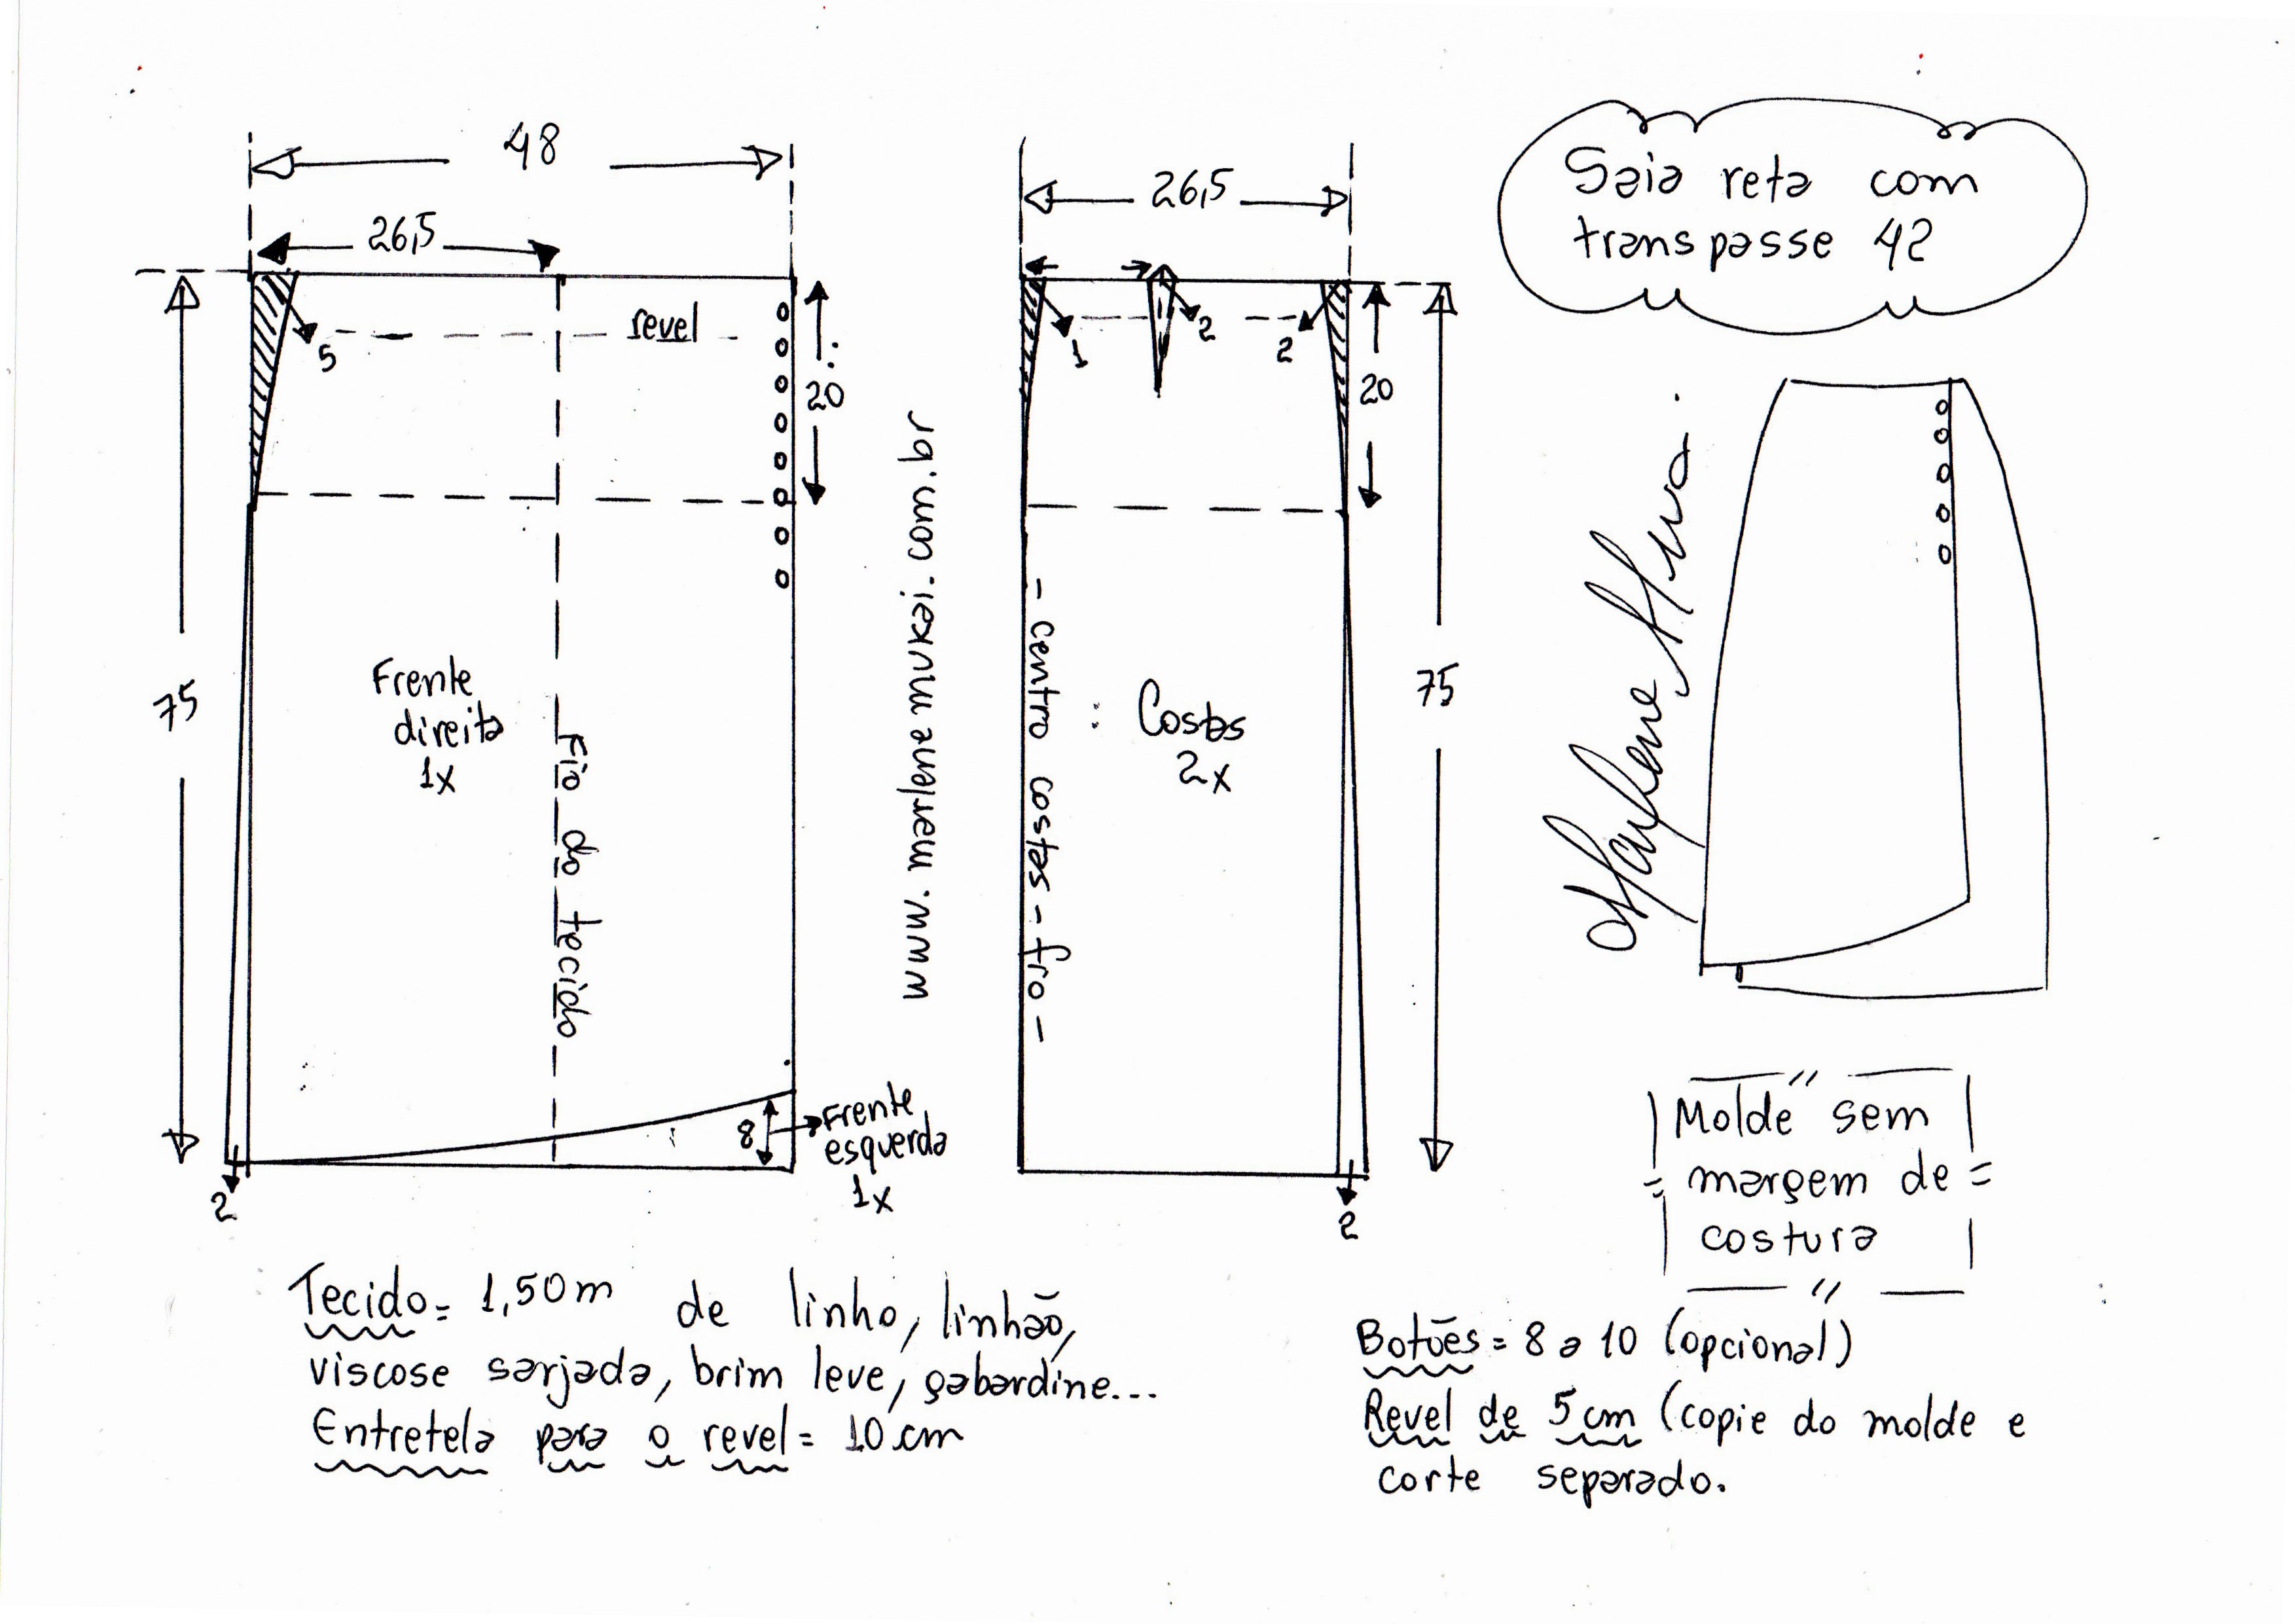 48
26,5
5
revel
20
75
Frente
direita
1x
Fio do tecido
8
Frente
esquerda
1x
2
www.marlenemukai.com.br
26,5
1
2
2
20
- centro costas - fio -
Costas
2x
75
2
Saia reta com
transpasse 42
Marlene Mukai
Molde sem
margem de
costura
Tecido = 1,50m de linho, linhão,
viscose sarjada, brim leve, gabardine...
Entretela para o revel = 10 cm
Botões = 8 a 10 (opcional)
Revel de 5 cm (copie do molde e
corte separado.